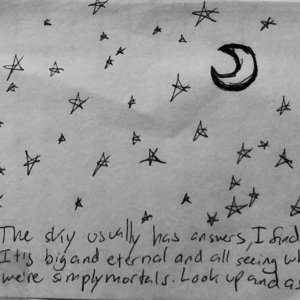 The sky usually has answers, I find
It's big and eternal and all seeing wh
we're simply mortals. Look up and as